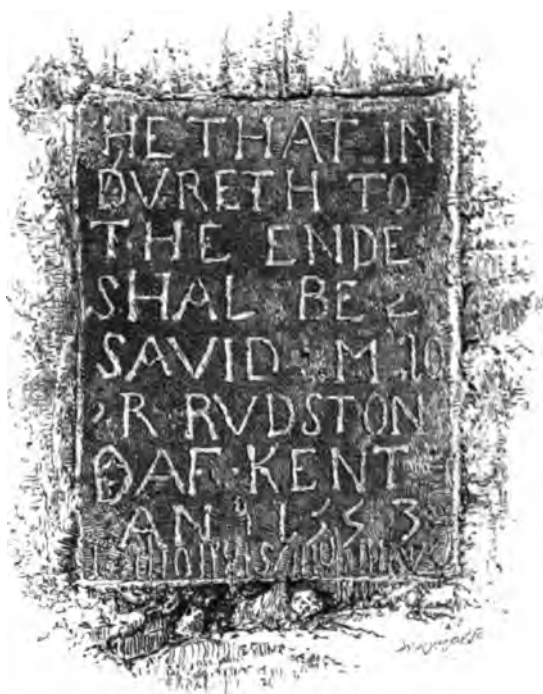 HE THAT IN
DVRETH TO
THE ENDE
SHAL : BE
SAVID : M 10
R RVDSTON
DAF · KENT
AN° 1553